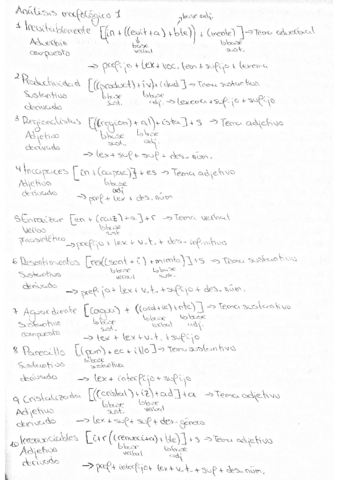 Análisis morfológico 1
base adj.
1 Inevitablemente [(in + ((evit + a) + ble)) + (mente)] → Tema adverbial
Adverbio base base
compuesto verbal adj.
→ prefijo + lex + voc. tem + sufijo + lexema
2 Productividad [((product) + iv) + idad] → Tema sustantivo
Sustantivo base base
derivado sust. adj. → lexema + sufijo + sufijo
3 Regionalistas [((region) + al) + ista] + s → Tema adjetivo
Adjetivo base base
derivado sust. adj.
→ lex + suf + suf + des. núm.
4 Incapaces [in + (capaz)] + es → Tema adjetivo
Adjetivo base
derivado adj
→ pref + lex + des. núm
5 Enraizar [en + (raiz) + a] + r → Tema verbal
Verbo base
parasintético sust.
→ prefijo + lex + v.t. + des. infinitivo
6 Resentimientos [re + (sent + i) + miento)] + s → Tema sustantivo
Sustantivo base base
derivado verbal sust
→ prefijo + lex + v.t. + sufijo + des. núm.
7 Aguardiente [(agua) + ((ard + ie) + nte)] → Tema sustantivo
Sustantivo base base base
compuesto sust. verbal adj.
→ lex + lex + v.t. + sufijo
8 Panecillo [(pan) + ec + illo] → Tema sustantivo
Sustantivo base
derivado sustantiva
→ lex + interfijo + sufijo
9 Cristalizada [((cristal) + iz) + ad] + a → Tema adjetivo
Adjetivo base base
derivado sust. verbal
→ lex + suf + suf + des. género
10 Irrenunciables [i + r + ((renunci + a) + ble)] + s → Tema adjetivo
Adjetivo base base
derivado verbal adj.
→ pref + interfijo + lex + v.t. + suf + des. núm.